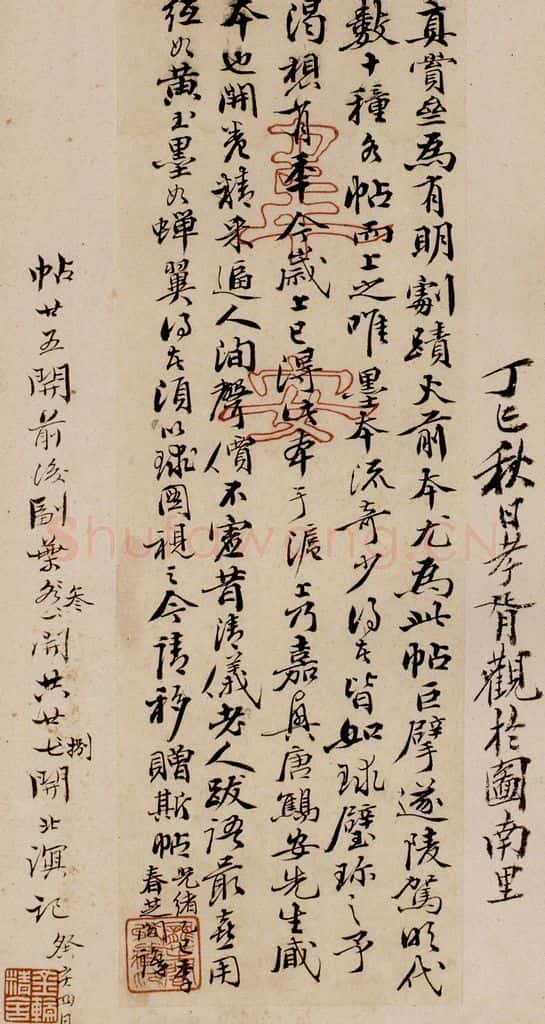 丁巳秋日孝胥觀於圖南里
真賞亝為有明劇蹟火前本尤為此帖巨擘遂陵駕明代
數十種名帖而上之唯墨本流奇少得者皆如球璧珎之予
渴想有年今歲上巳得此本于滬上乃嘉興唐鷦安先生臧
本也開卷精采逼人洵聲價不虛昔清儀老人跋語最喜用
紙如黃玉墨如蟬翼得者須以球圖視之今請移贈斯帖光緒乙巳季
春芝閣
帖廿五開前後副葉叁開共廿七捌開北溟記
癸亥四月
Shutowang.CN